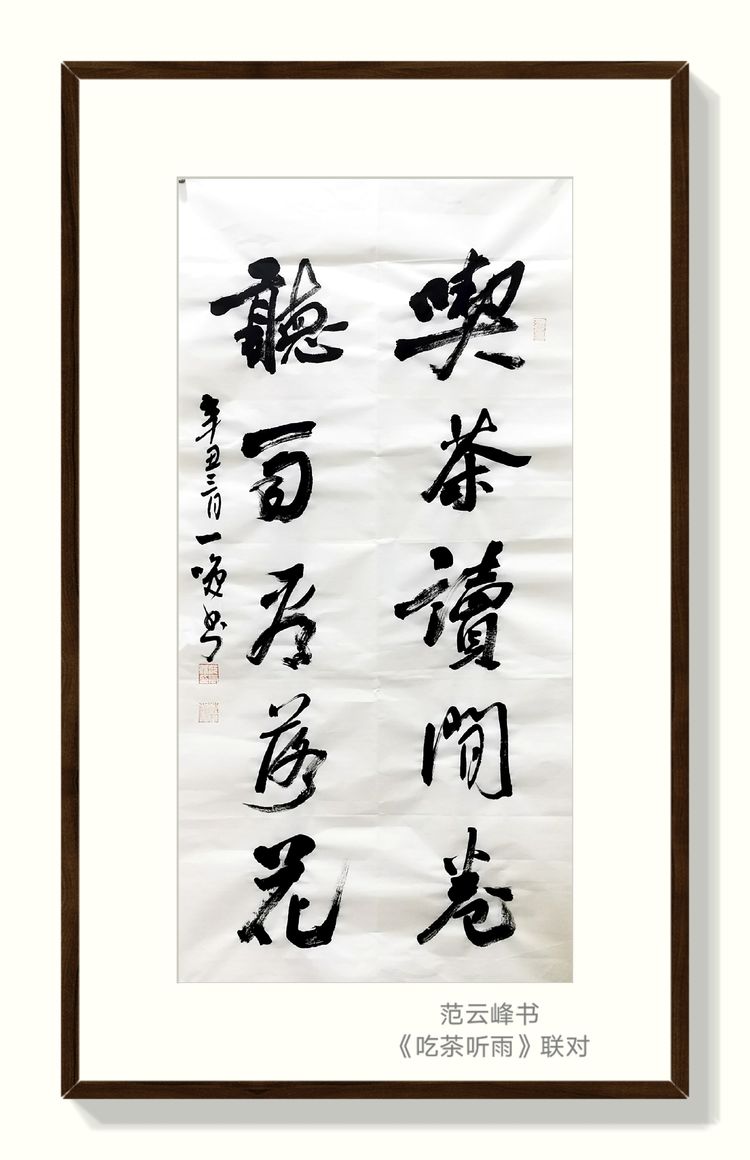 喫茶讀閒卷
聽雨看落花
辛丑三月一峻书
范云峰书
《吃茶听雨》联对